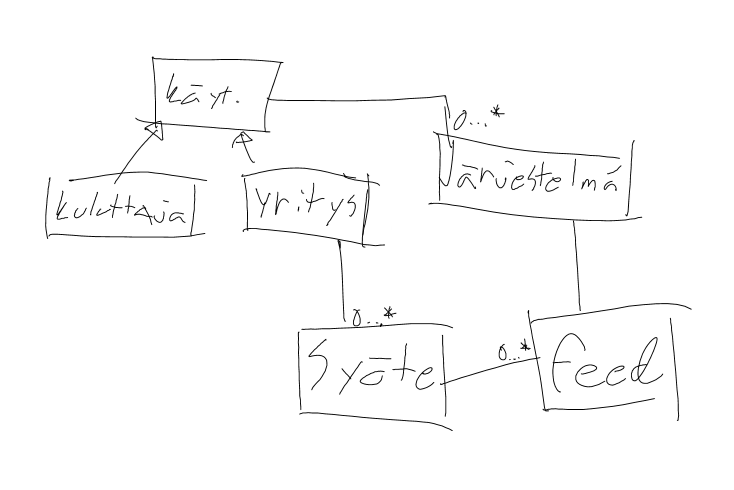 käyt.
0...*
Järjestelmä
kuluttaja
yritys
0...*
Syöte
0...*
feed